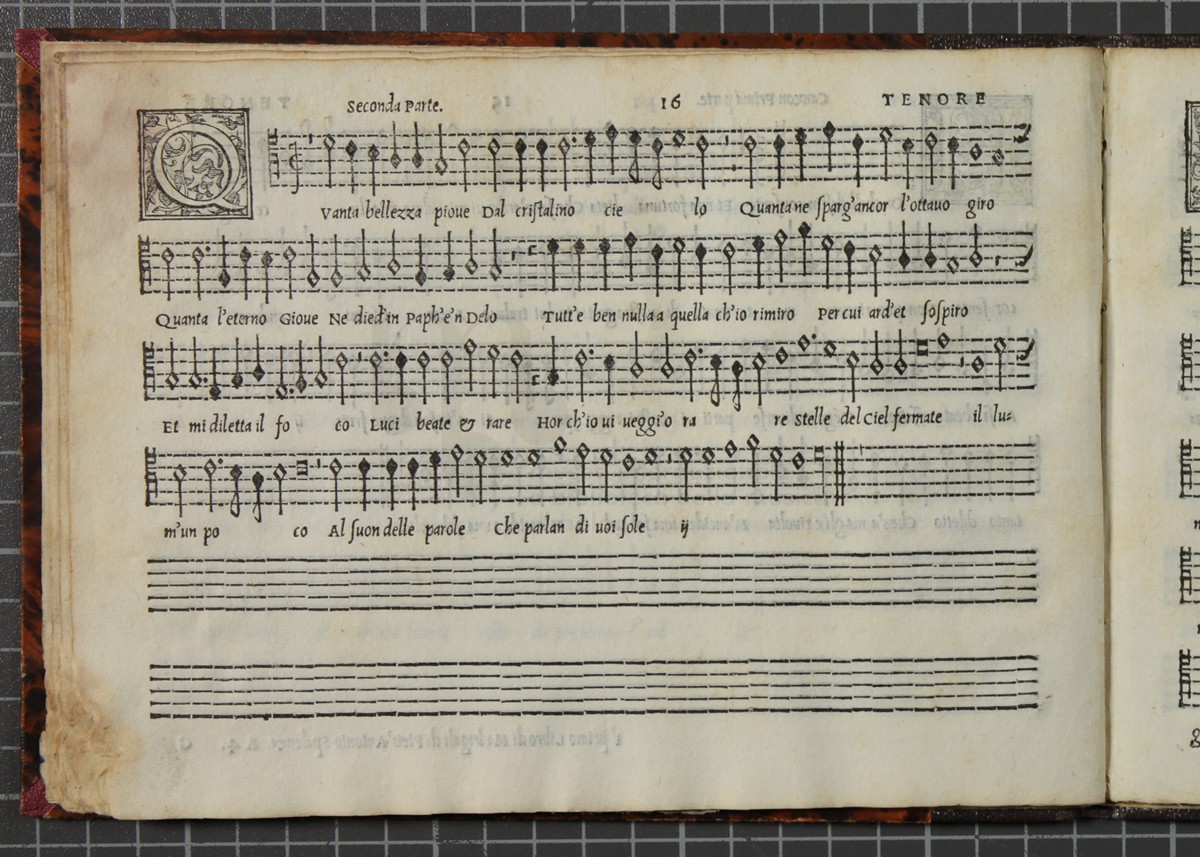 Seconda Parte. 16 TENORE
Q Vanta bellezza pioue Dal cristalino cie lo Quanta ne sparg'ancor l'ottauo giro
Quanta l'eterno Gioue Ne died'in Paph'e'n Delo Tutt'e ben nulla a quella ch'io rimiro Per cui ard'et sospiro
Et mi diletta il fo co Luci beate & rare Hor ch'io ui ueggi'o ra re Stelle del Ciel fermate il lu-
m'un po co Al suon delle parole Che parlan di uoi sole ij